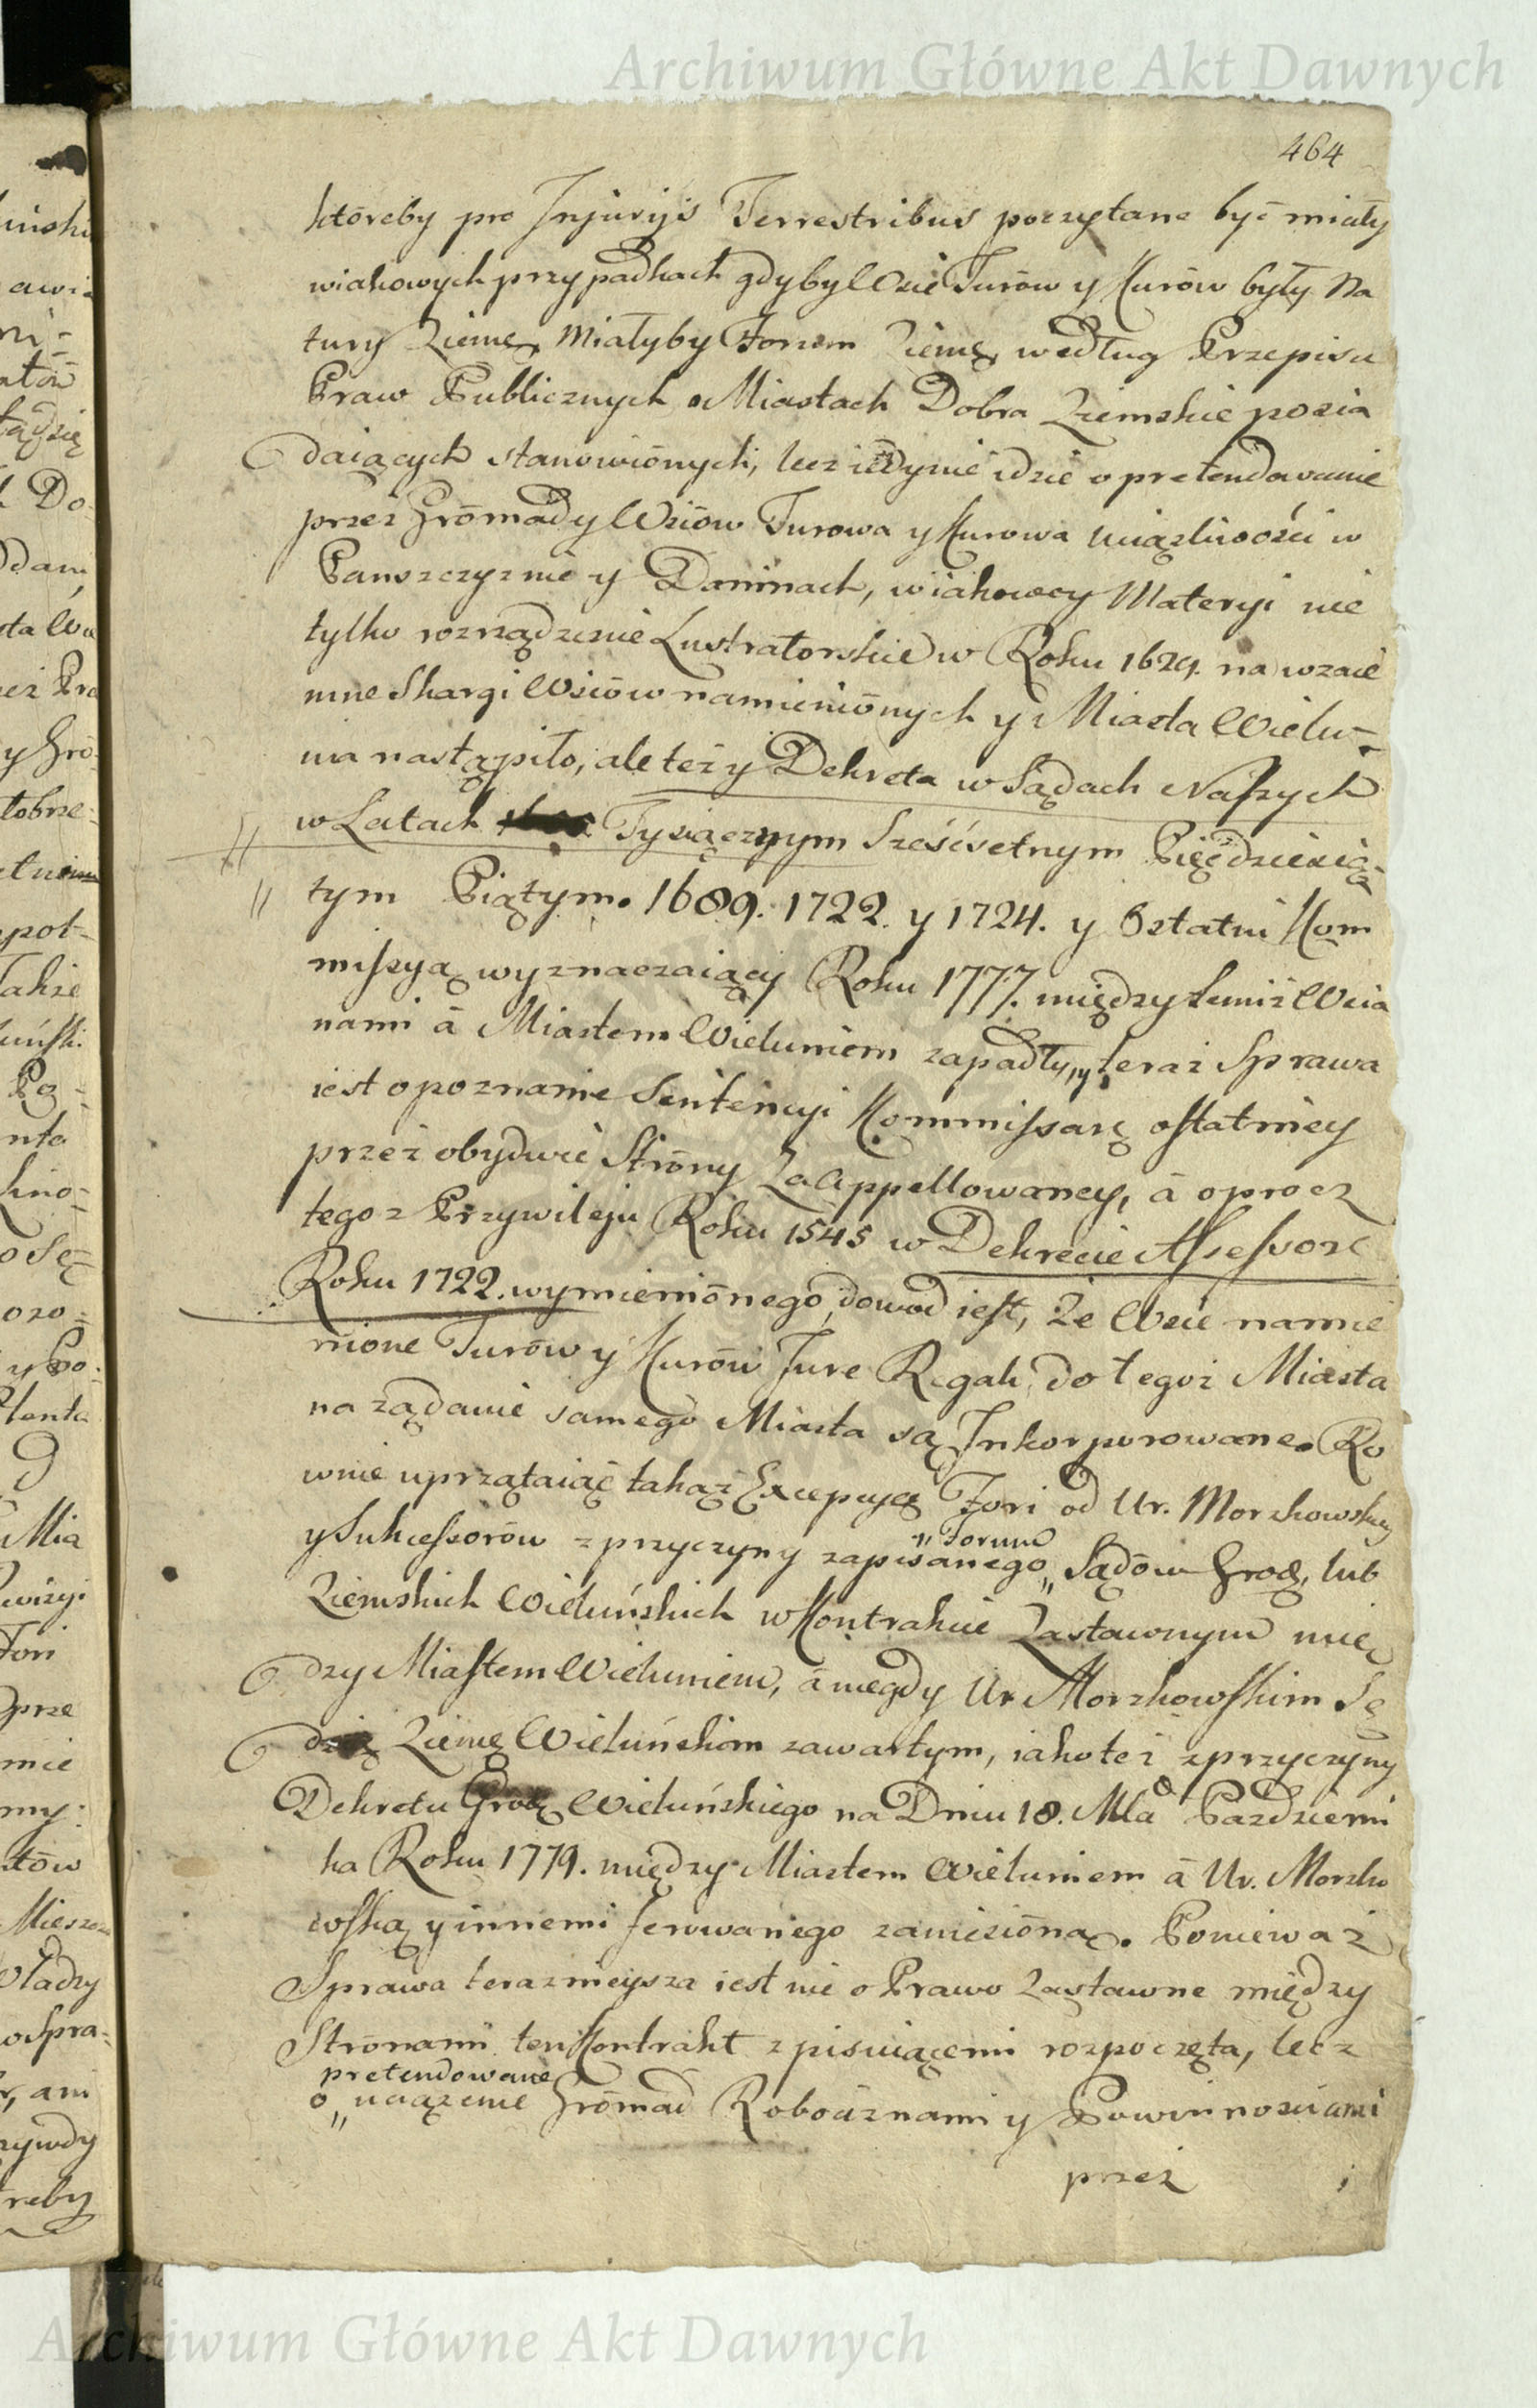 Archiwum Główne Akt Dawnych
464
któreby pro Injurijs Terrestribus poczytane być miały
w iakowych przypadkach gdyby Wsie Turów y Kurów były Na
tury Ziemę, Miałyby Forum Ziemę, według Przepisu
Praw Publicznych o Miastach Dobra Ziemskie posia
daiących stanowiónych, lecz iedynie idzie o pretendowanie
przez Grómady Wsiów Turowa y Kurowa uciążliwości w
Panszczyznie y Daninach, w iakowey Materyi nie
tylko rozrządzenie Lustratorskie w Roku 1629. na wzaie
mne Skargi Wsiów namieniónych y Miasta Wielu-
nia nastąpiło, ale też y Dekreta w Sądach Naszych
w Latach Tysiącznym Sześćsetnym Pięćdziesią-
tym Piątym. 1689. 1722. y 1724. y Ostatni Kom
missyą wyznaczaiący Roku 1777. między temiż Wsia
nami á Miastem Wieluniem zapadły, y teraz Sprawa
iest o poznanie Sentencyi Kommissarę ostatniey
przez obydwie Stróny Zaappellowaney, á oprocz
tego z Przywileju Roku 1545 w Dekrecie Assessorę
Roku 1722. wymieniónego, dowod iest, że Wsie namie
nione Turów y Kurów Jure Regali do tegoż Miasta
na żądanie samego Miasta są Inkorporowane. Ro
wnie uprzątaiąc takąż Excepcyę Fori od Ur. Morzkowskiey
y Sukcessorów z przyczyny zapisanego „ Sądów Grodę, lub
„ Forum
Ziemskich Wieluńskich w Kontrakcie Zastawnym mię
dzy Miastem Wieluniem, á niegdy Ur. Morzkowskim Sę
dzią Ziemę Wieluńskim zawartym, iako też z przyczyny
Dekretu Grodę Wieluńskiego na Dniu 18. Mca Pazdzierni
ka Roku 1779. między Miastem Wieluniem á Ur. Morzko
wską y innemi ferowanego zaniesióną. Ponieważ
Sprawa teraznieysza iest nie o Prawo Zastawne między
Strónami ten Kontrakt spisuiącemi rozpoczęta, lecz
pretendowane
o „ uciążenie Grómad Robociznami y Powinnosciami
przez
Archiwum Główne Akt Dawnych